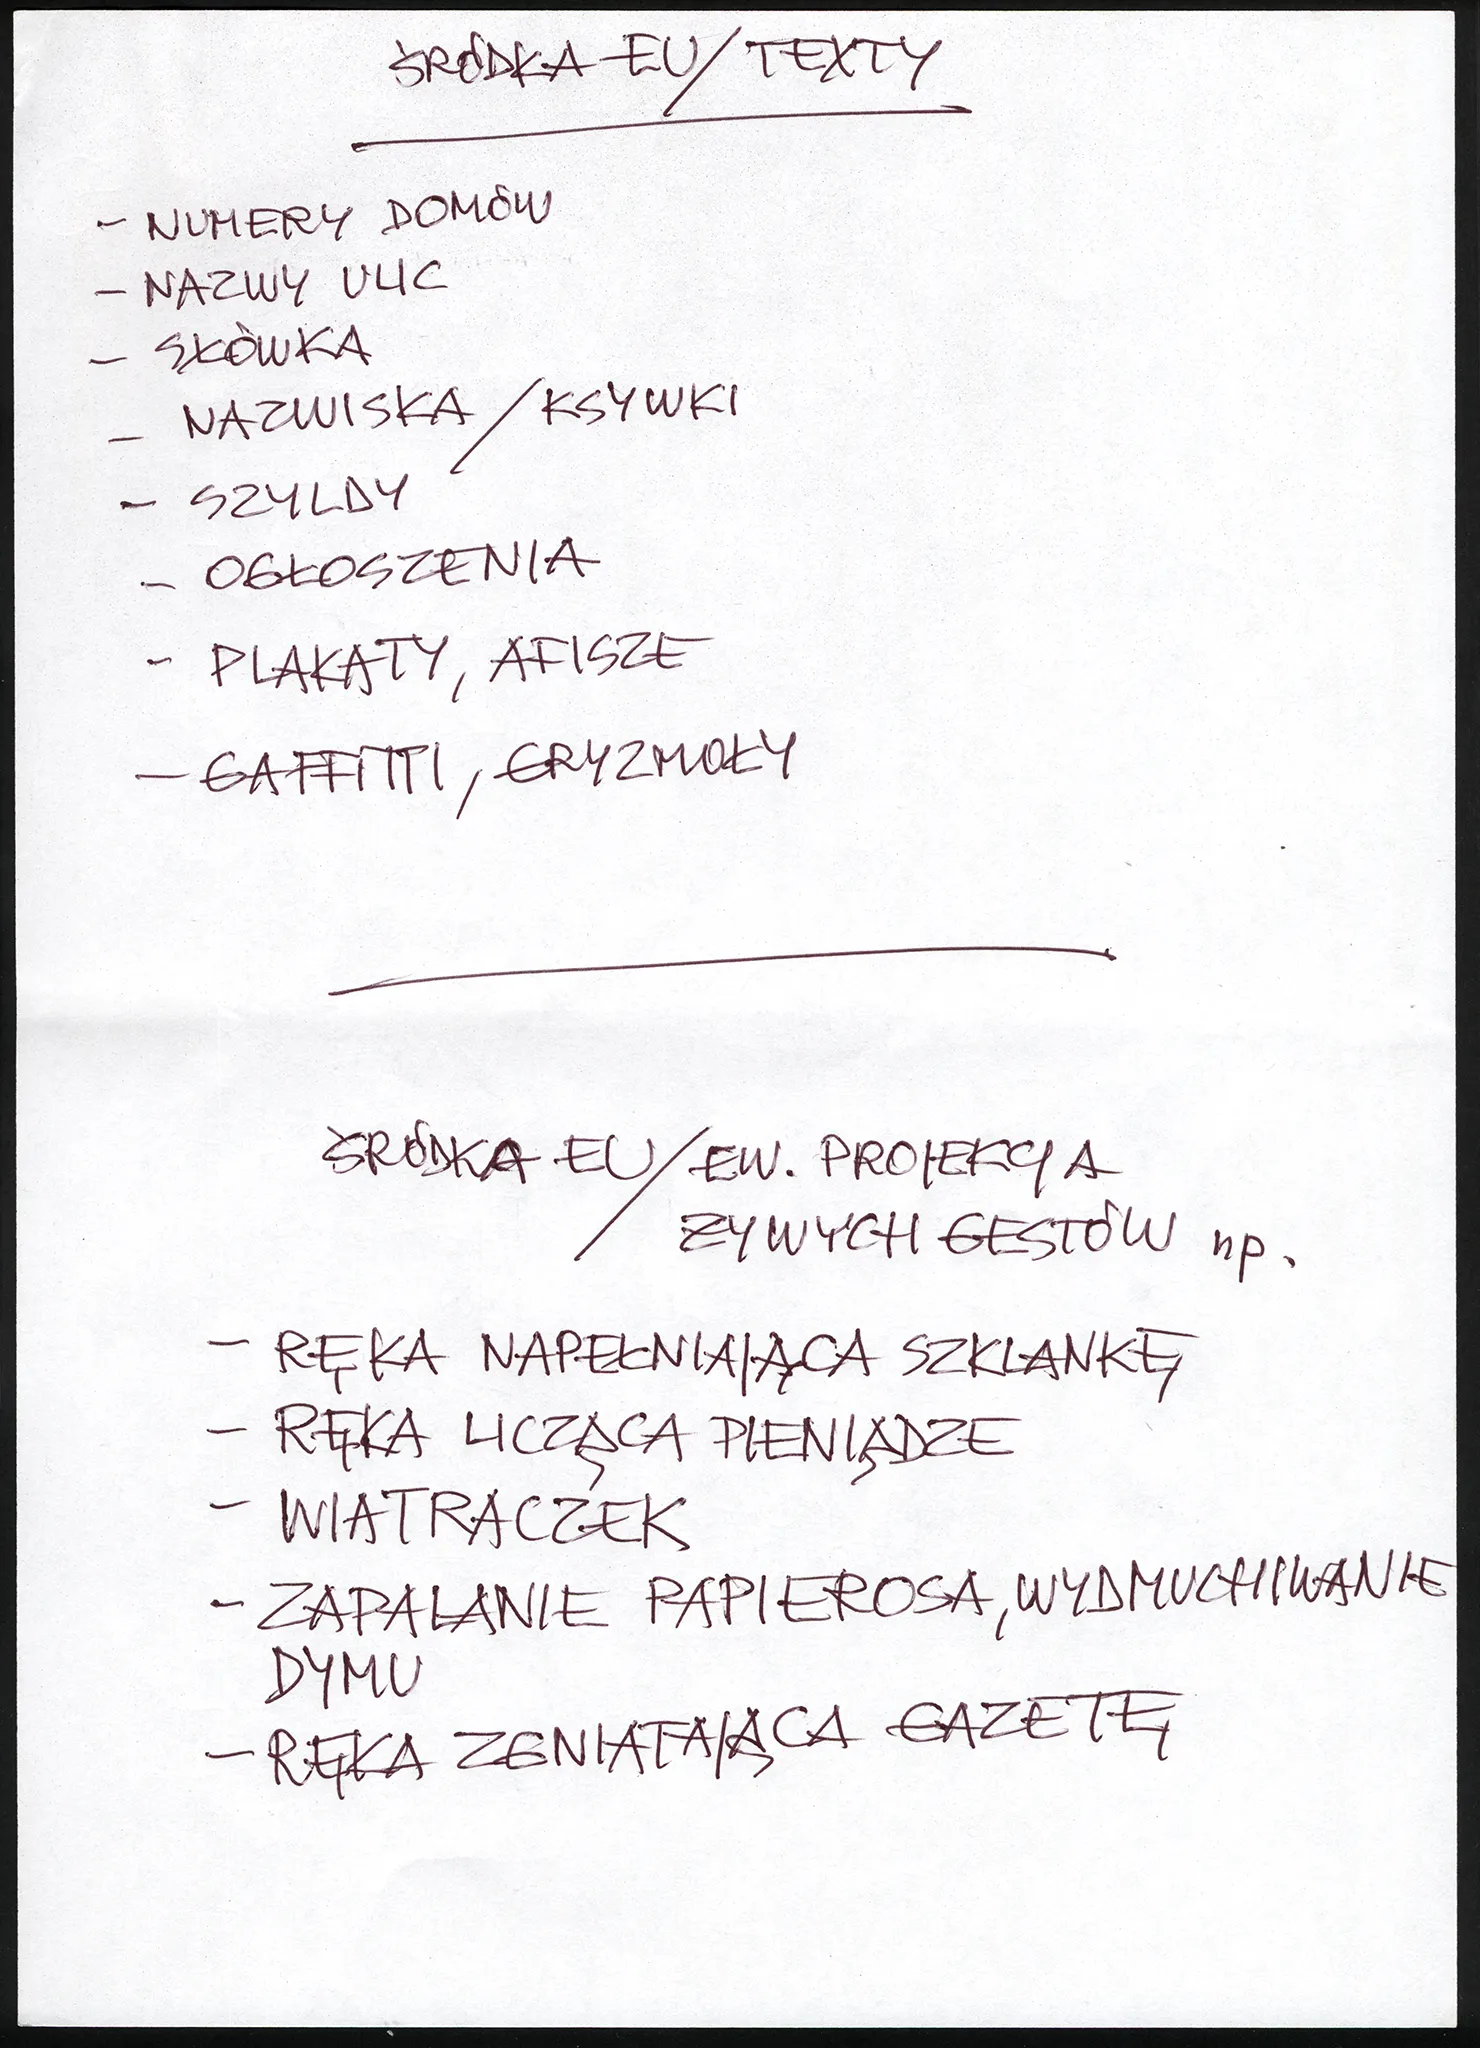 ŚRÓDKA EU/TEXTY
- NUMERY DOMÓW
- NAZWY ULIC
- SŁÓWKA
- NAZWISKA/KSYWKI
- SZYLDY
- OGŁOSZENIA
- PLAKATY, AFISZE
- GAFFITTI, GRYZMOŁY
ŚRÓDKA EU/EW. PROJEKCJA
ŻYWYCH GESTÓW np.
- RĘKA NAPEŁNIAJĄCA SZKLANKĘ
- RĘKA LICZĄCA PIENIĄDZE
- WIATRACZEK
- ZAPALANIE PAPIEROSA, WYDMUCHIWANIE
DYMU
- RĘKA ZGNIATAJĄCA GAZETĘ